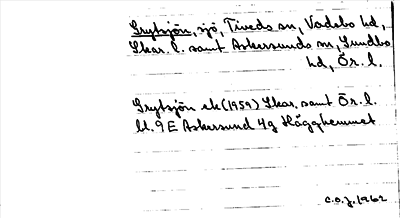 Grytsjön, sjö, Tiveds sn, Vadsbo hd,
Skar. l. samt Askersunds sn, Sundbo
hd, Ör. l.
Grytsjön ek (1959) Skar. samt Ör. l.
bl. 9 E Askersund 4g Hägghemmet
C.O.J. 1962